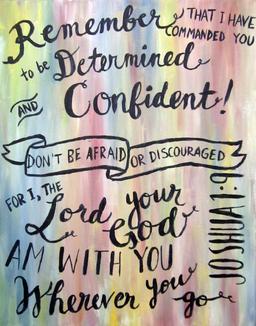 Remember THAT I HAVE
COMMANDED YOU
to be Determined
AND Confident!
DON'T BE AFRAID OR DISCOURAGED
FOR I, THE
Lord your
God
AM WITH YOU
Wherever you
go
JOSHUA 1:9